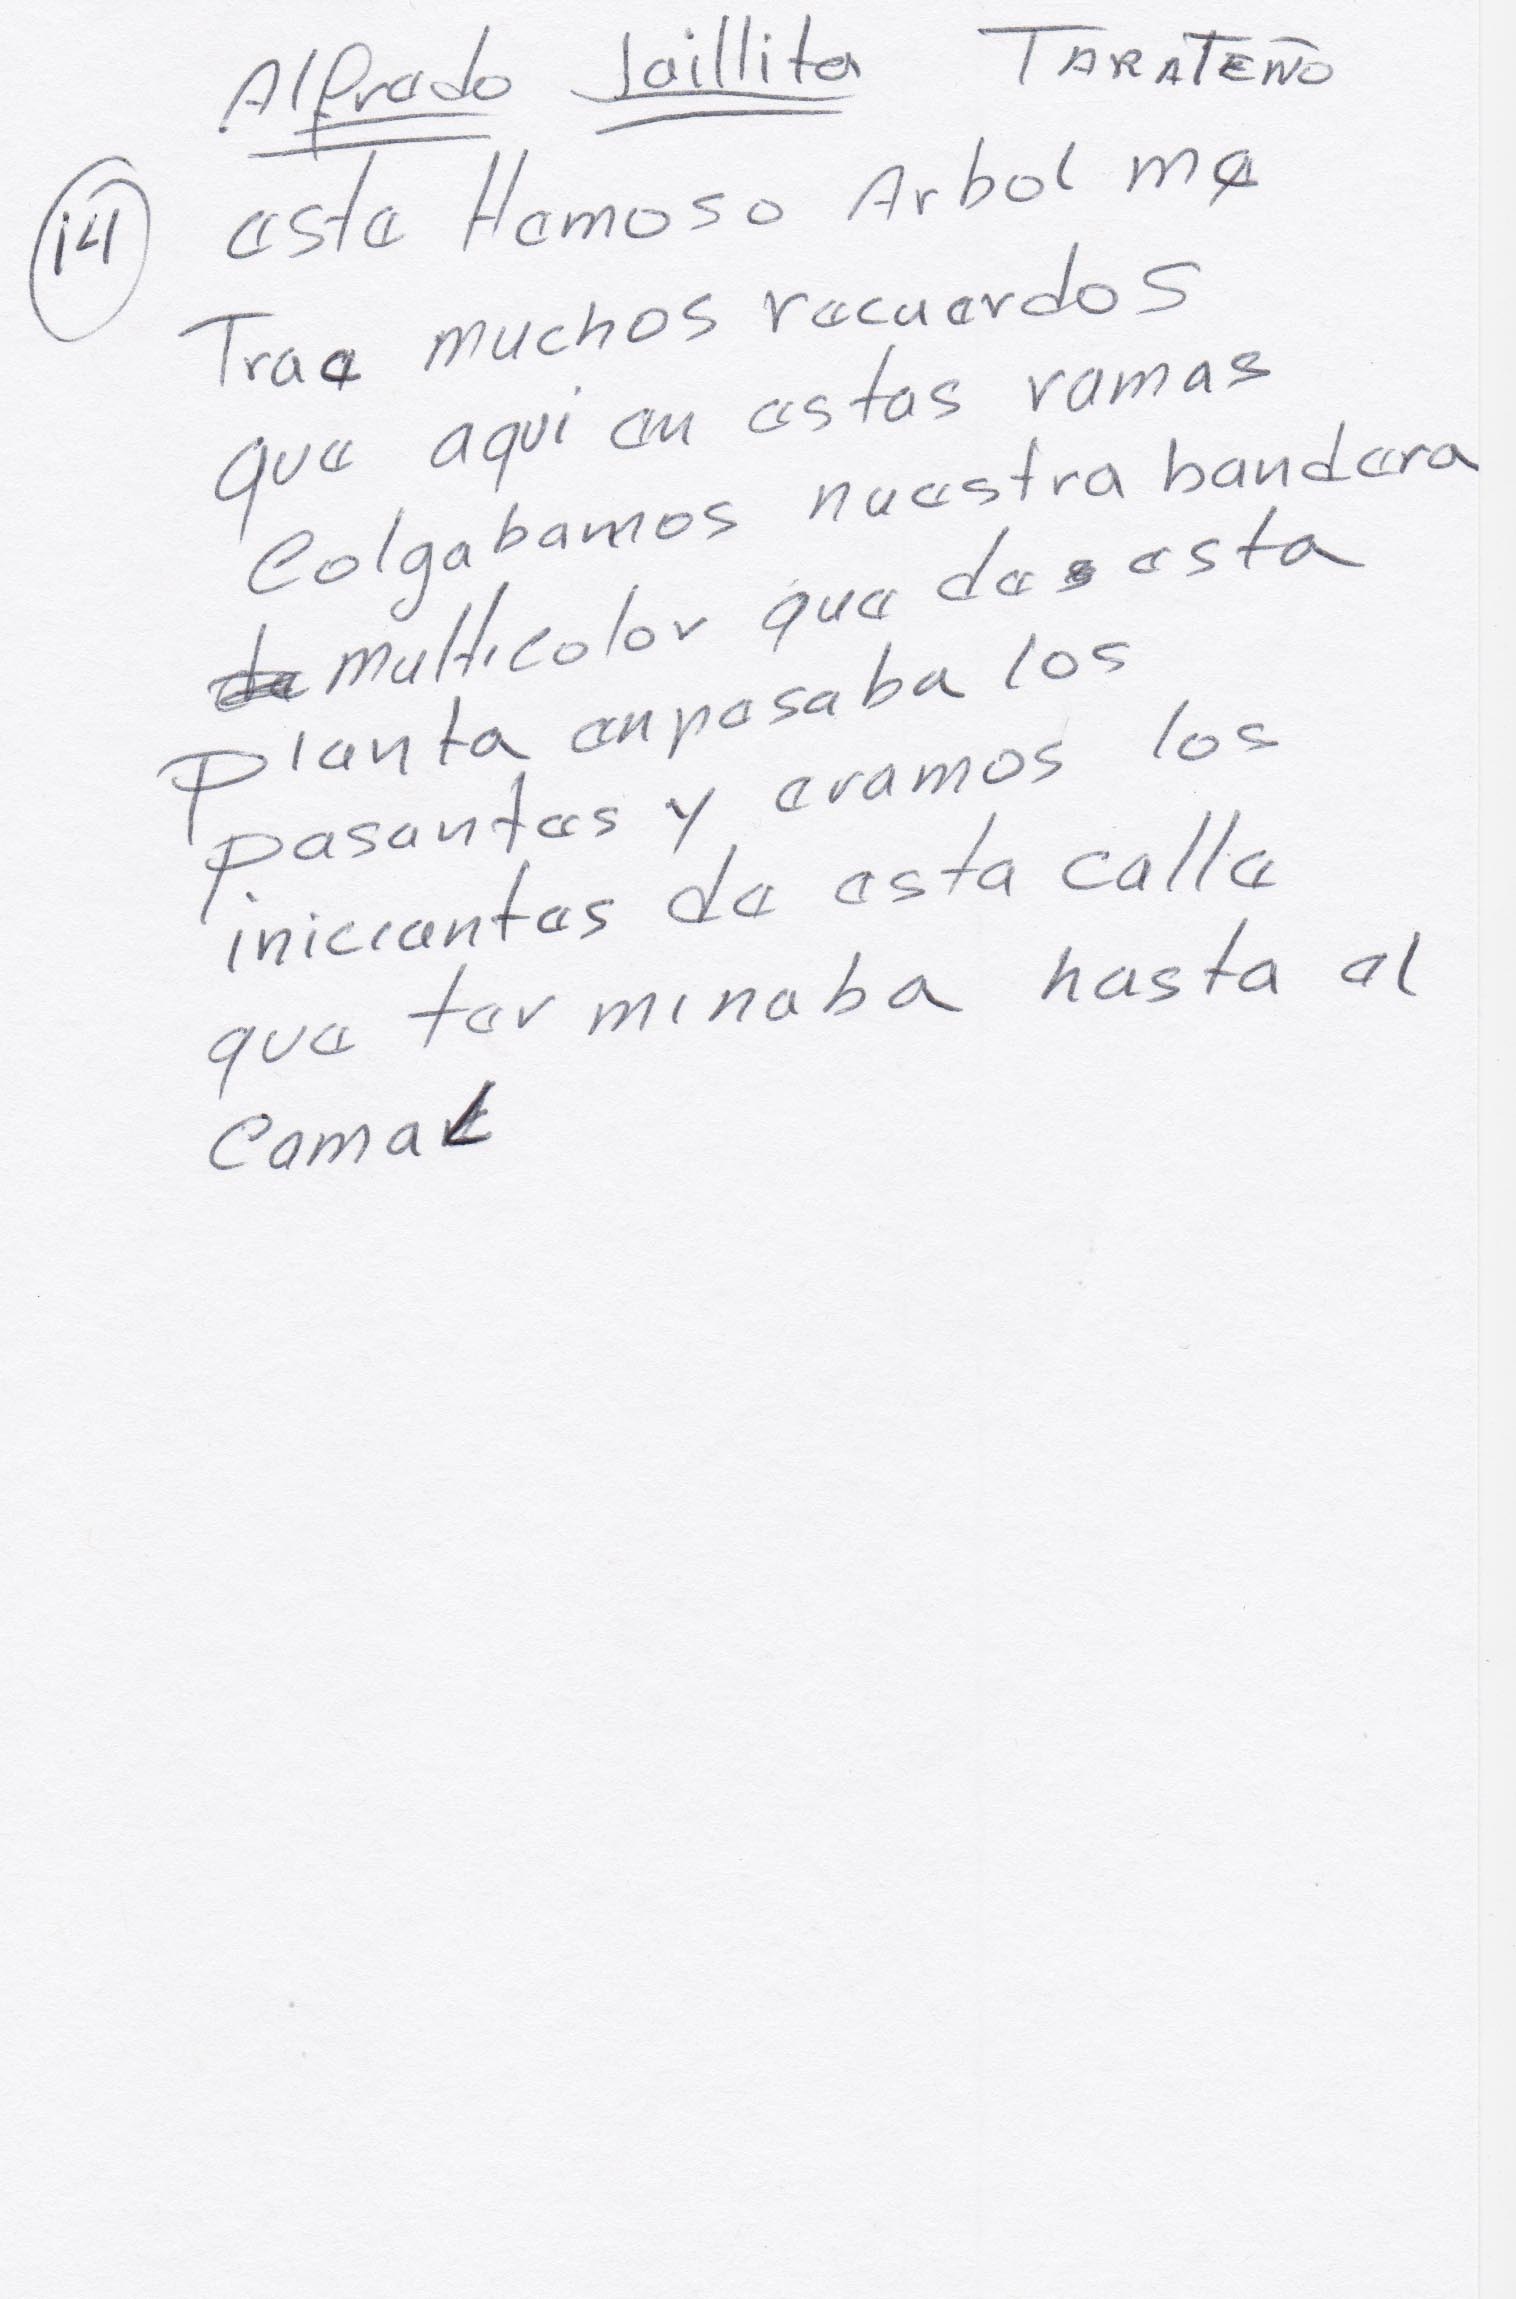 Alfredo Laillita TARATEÑO
14 este Hemoso Arbol me
Trae muchos recuerdos
que aqui en estas ramas
Colgabamos nuestra bandera
de multicolor que des esta
planta enpesaba los
pasantes y eramos los
iniciantes de esta calle
que terminaba hasta el
Camal